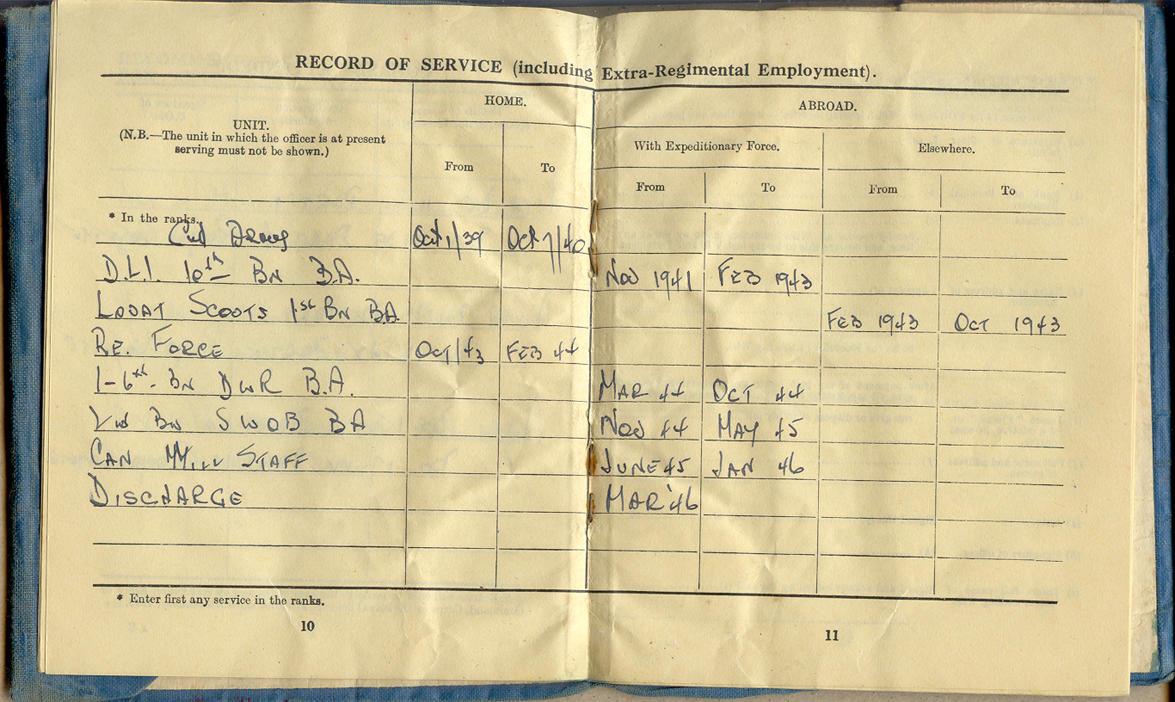 RECORD OF SERVICE (including Extra-Regimental Employment).
HOME.
ABROAD.
UNIT.
(N.B.—The unit in which the officer is at present
serving must not be shown.)
With Expeditionary Force.
Elsewhere.
From
To
From
To
From
To
* In the ranks.
Oct 1/39 Oct 7/40
D.L.I. 10th BN B.A. NOV 1941 FEB 1943
LOVAT SCOUTS 1st BN BA. FEB 1943 OCT 1943
RE. FORCE OCT/43 FEB 44
1-6th BN DWR B.A. MAR 44 OCT 44
BN SWOB BA NOV 44 MAY 45
CAN STAFF JUNE 45 JAN 46
DISCHARGE MAR '46
* Enter first any service in the ranks.
10
11